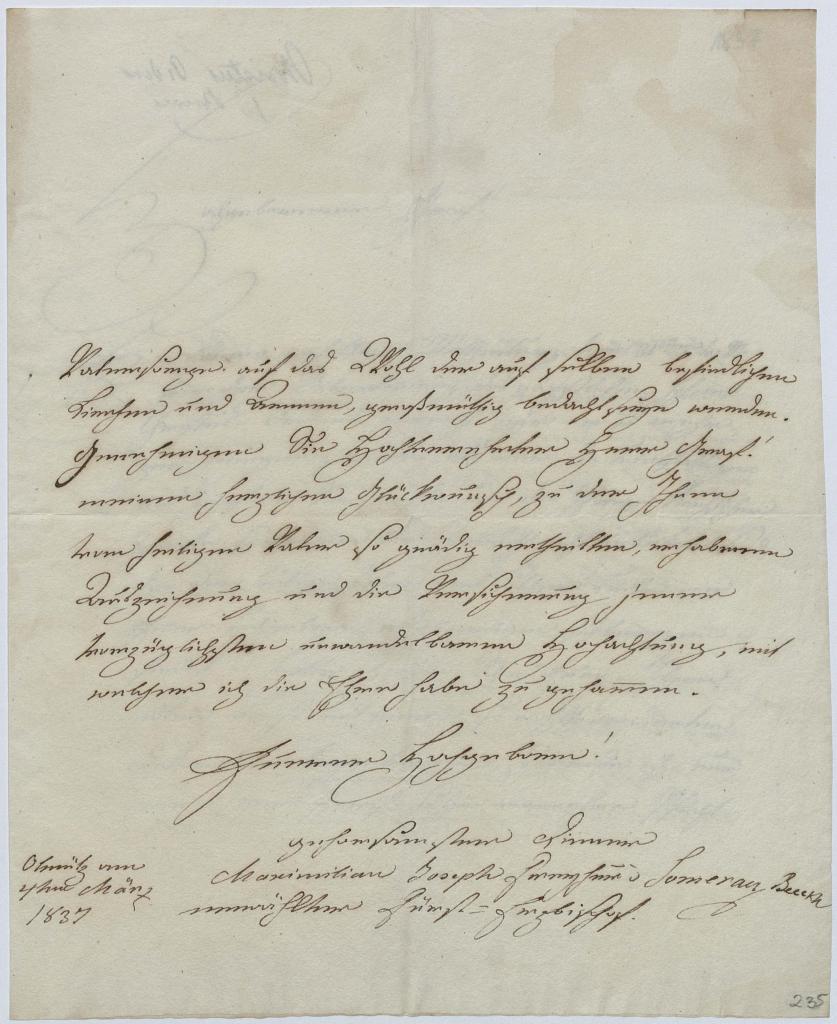 Vatersorge auf das Wohl der auf selben befindlichen
Kirchen und Armen, großmüthig bedacht seyn werden.
Genehmigen Sie Hochverehrter Herr Graf!
meinen herzlichen Glückwunsch, zu der Ihnen
vom heiligen Vater so gnädig ertheilten, erhabenen
Auszeichnung und die Versicherung jener
vorzüglichsten unwandelbaren Hochachtung, mit
welcher ich die Ehre habe zu geharren.
Euerer Hochgeboren!
gehorsamster Diener
Maximilian Joseph Freyherr v Somerau Beeckh
erwählter Fürst=Erzbischof.
Olmütz am
4ten März
1837
235